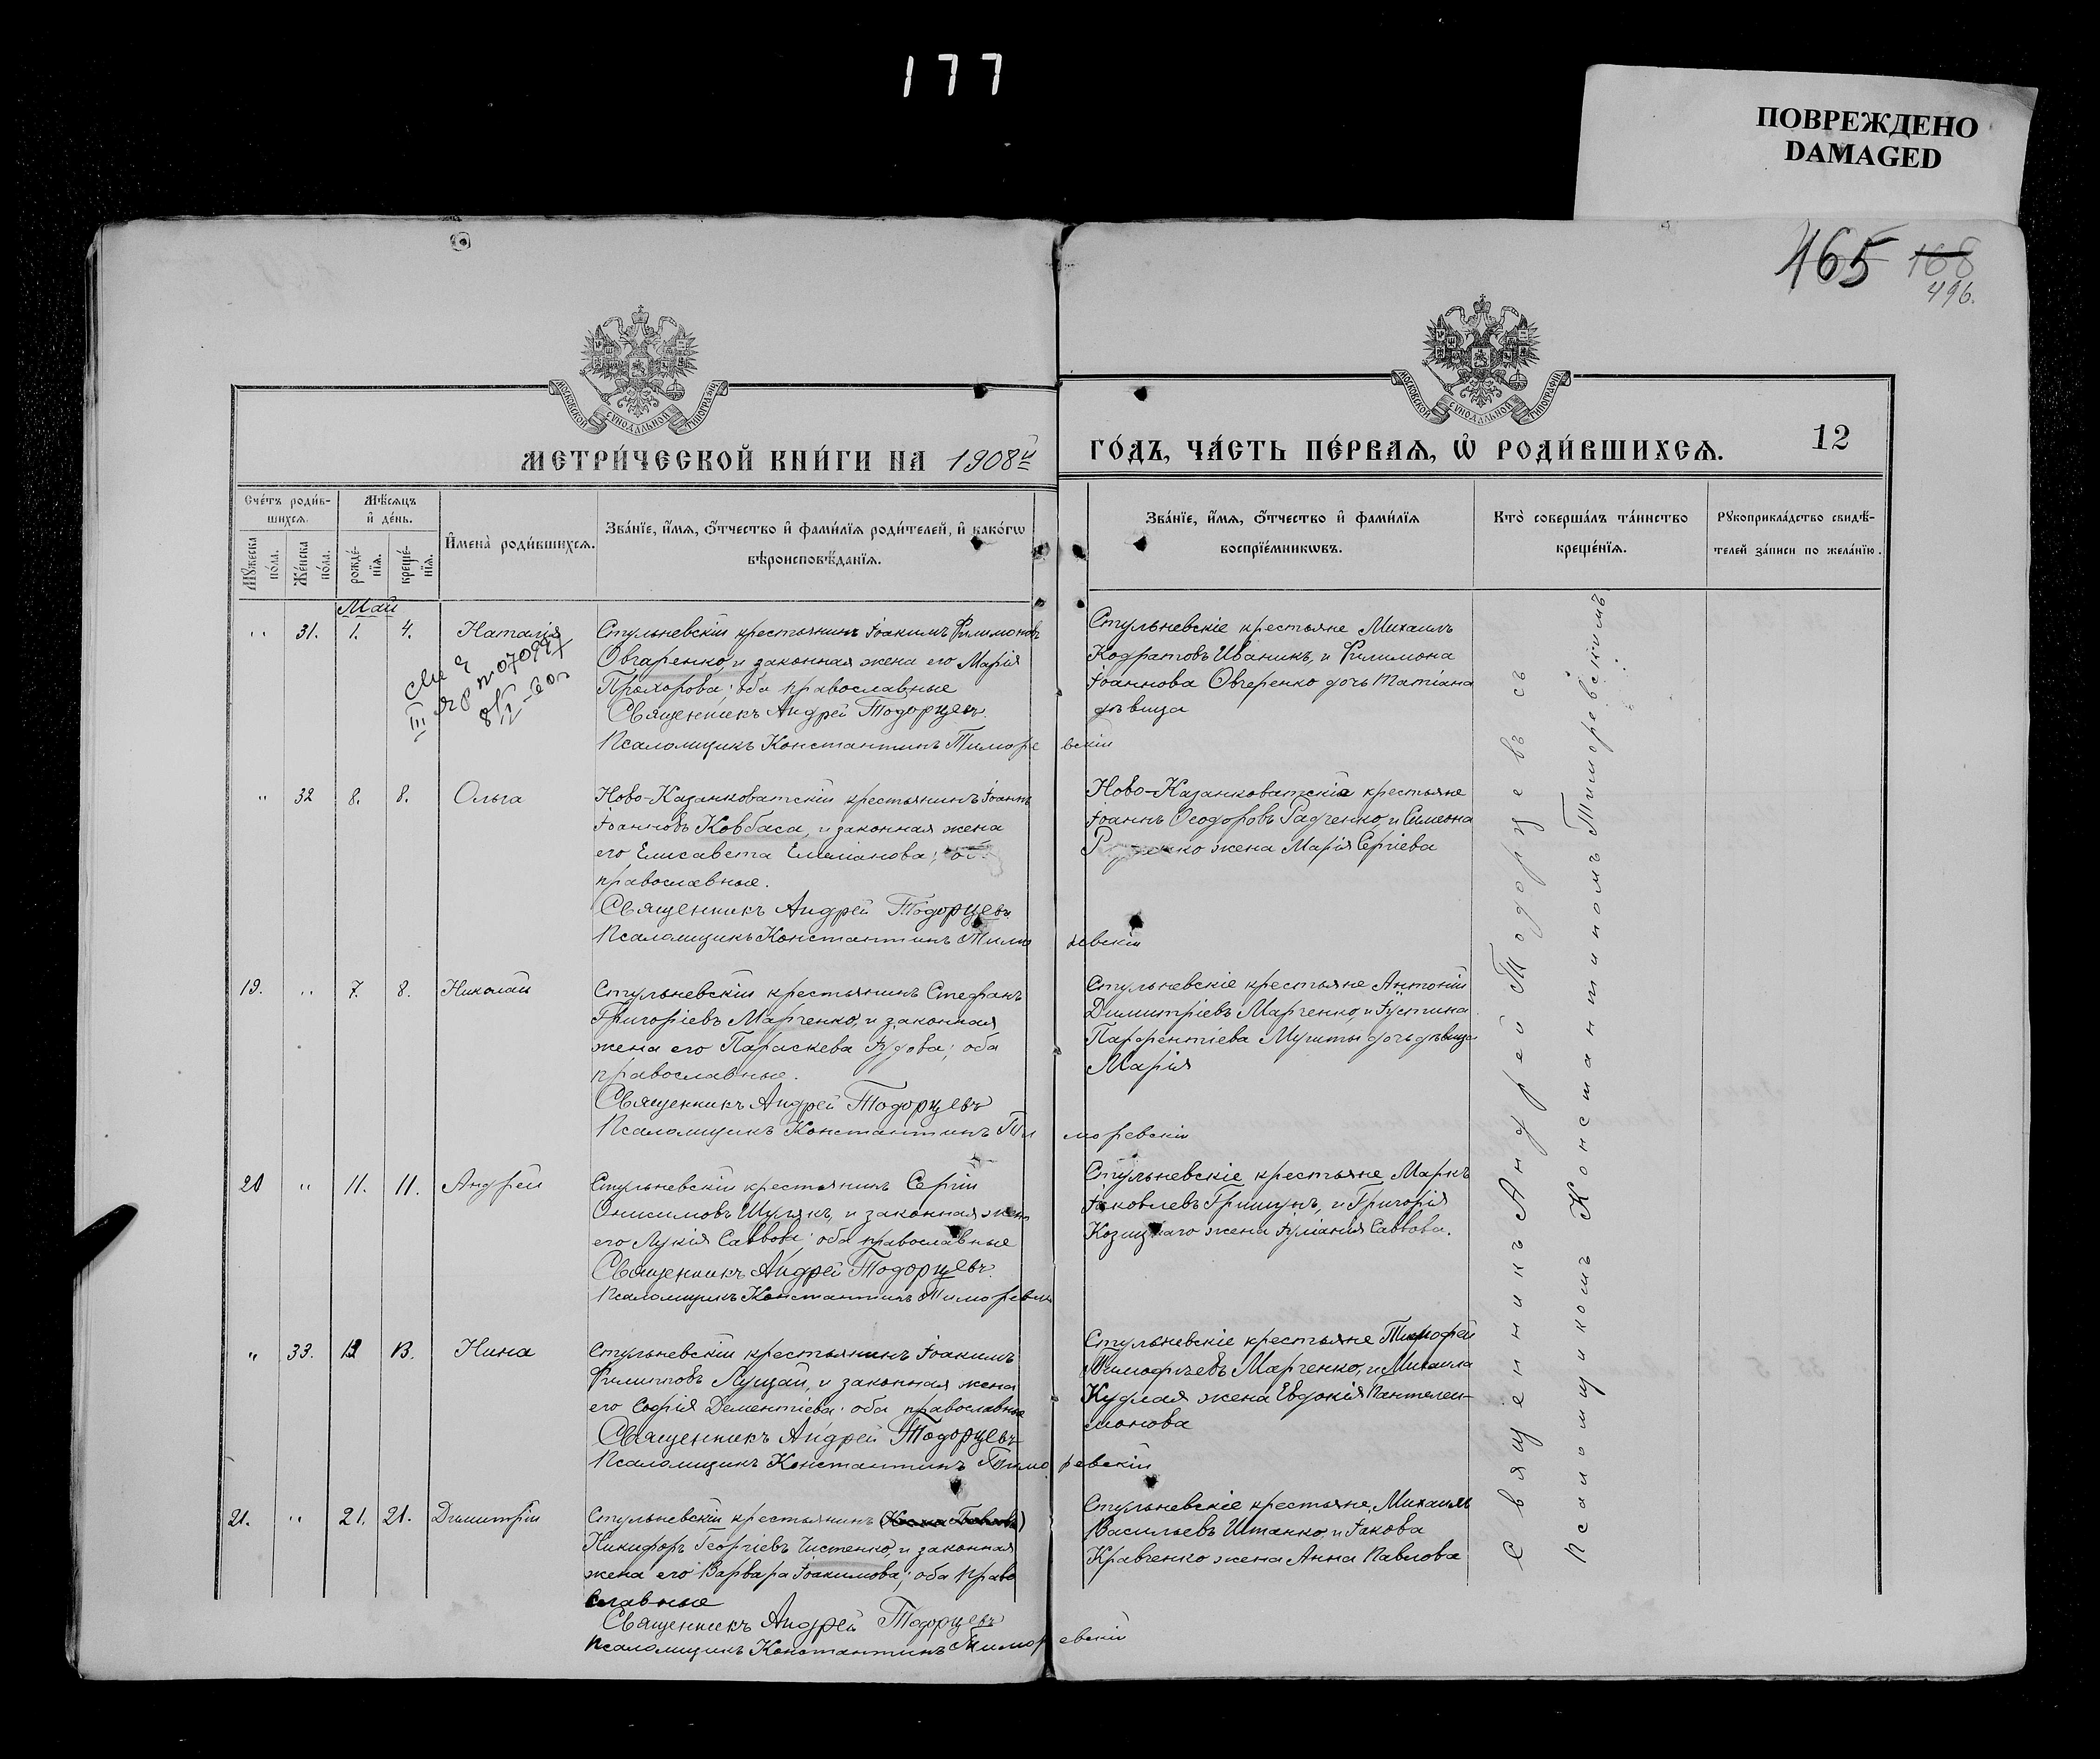 177
ПОВРЕЖДЕНО
DAMAGED
465 168
496.
МОСКОВСКОЙ СѴНОДАЛЬНОЙ ТИПОГРАФІИ
МОСКОВСКОЙ СѴНОДАЛЬНОЙ ТИПОГРАФІИ
МЕТРИ́ЧЕСКОЙ КНИ́ГИ НА 1908й
ГО́ДЪ, ЧА́СТЬ ПЕ́РВАѦ, Ѽ РОДИ́ВШИХСѦ.
12
Сче́тъ роди́в-
шихсѧ.
Мѣ́сѧцъ
и҆ де́нь.
Мꙋ́жеска по́ла.
Же́нска по́ла.
рожде́-
нїѧ.
креще́-
нїѧ.
И҆мена̀ роди́вшихсѧ.
Зва́нїе, и҆́мѧ, ѻ҆́тчество и҆ фами́лїѧ роди́телей, и҆ како́гѡ
вѣроисповѣ́данїѧ.
Зва́нїе, и҆́мѧ, ѻ҆́тчество и҆ фами́лїѧ
воспрїе́мникѡвъ.
Кто̀ соверша́лъ та́инство
креще́нїѧ.
Рꙋкоприкла́дство свидѣ́-
телей за́писи по жела́нїю.
Май
" 31. 1. 4. Наталія
Стульневскій крестьянинъ Іоакимъ Филимоновъ
Овчаренко, и законная жена его Марія
Прохорова; оба православные
Священникъ Андрей Тодорцевъ.
Псаломщикъ Константинъ Тиморевскій
Стульневскіе крестьяне Михаилъ
Кодратовъ Иваникъ, и Филимона
Іоаннова Овчеренко дочь Татіана
дѣвица
" 32 8. 8. Ольга
Ново-Казанковатскій крестьянинъ Іоаннъ
Іоанновъ Ковбаса, и законная жена
его Елисавета Емеліанова;
православные.
Священникъ Андрей Тодорцевъ
Псаломщикъ Константинъ Тиморевскій
Ново-Казанковатскіе крестьяне
Іоаннъ Ѳеодоровъ Радченко, и Симеона
жена Марія Сергіева
19. " 7. 8. Николай
Стульневскій крестьянинъ Стефанъ
Григоріевъ Марченко, и законная
жена его Параскева Іудова; оба
православные.
Священникъ Андрей Тодорцевъ
Псаломщикъ Константинъ Тиморевскій
Стульневскіе крестьяне Антоній
Димитріевъ Марченко, и Іустина
Парфентіева Мушты дочь дѣвица
Марія
20 " 11. 11. Андрей
Стульневскій крестьянинъ Сергій
Онисимовъ Шуллкъ, и законная жена
его Лукія Саввова; оба православные
Священникъ Андрей Тодорцевъ.
Псаломщикъ Константинъ Тиморевскій
Стульневскіе крестьяне Маркъ
Іаковлевъ Гришунъ, и Григорія
Козицкаго жена Іуліанія Саввова.
" 33. 12 13. Нина
Стульневскій крестьянинъ Іоакимъ
Филипповъ Лущай, и законная жена
его Софія Дементіева; оба православные
Священникъ Андрей Тодорцевъ
Псаломщикъ Константинъ Тиморевскій
Стульневскіе крестьяне Тимофей
Тимофѣевъ Марченко, и Михаила
Кудлая жена Евдокія Пантелеи-
монова
21. " 21. 21. Димитрій
Стульневскій крестьянинъ
Никифоръ Георгіевъ Чистенко, и законная
жена его Варвара Іоакимова; оба право
славные
Священникъ Андрей Тодорцевъ
Псаломщикъ Константинъ Тиморевскій
Стульневскіе крестьяне Михаилъ
Васильевъ Штанко, и Іакова
Кравченко жена Анна Павлова
Священникъ Андрей Тодорцевъ съ
псаломщикомъ Константиномъ Тиморевскимъ